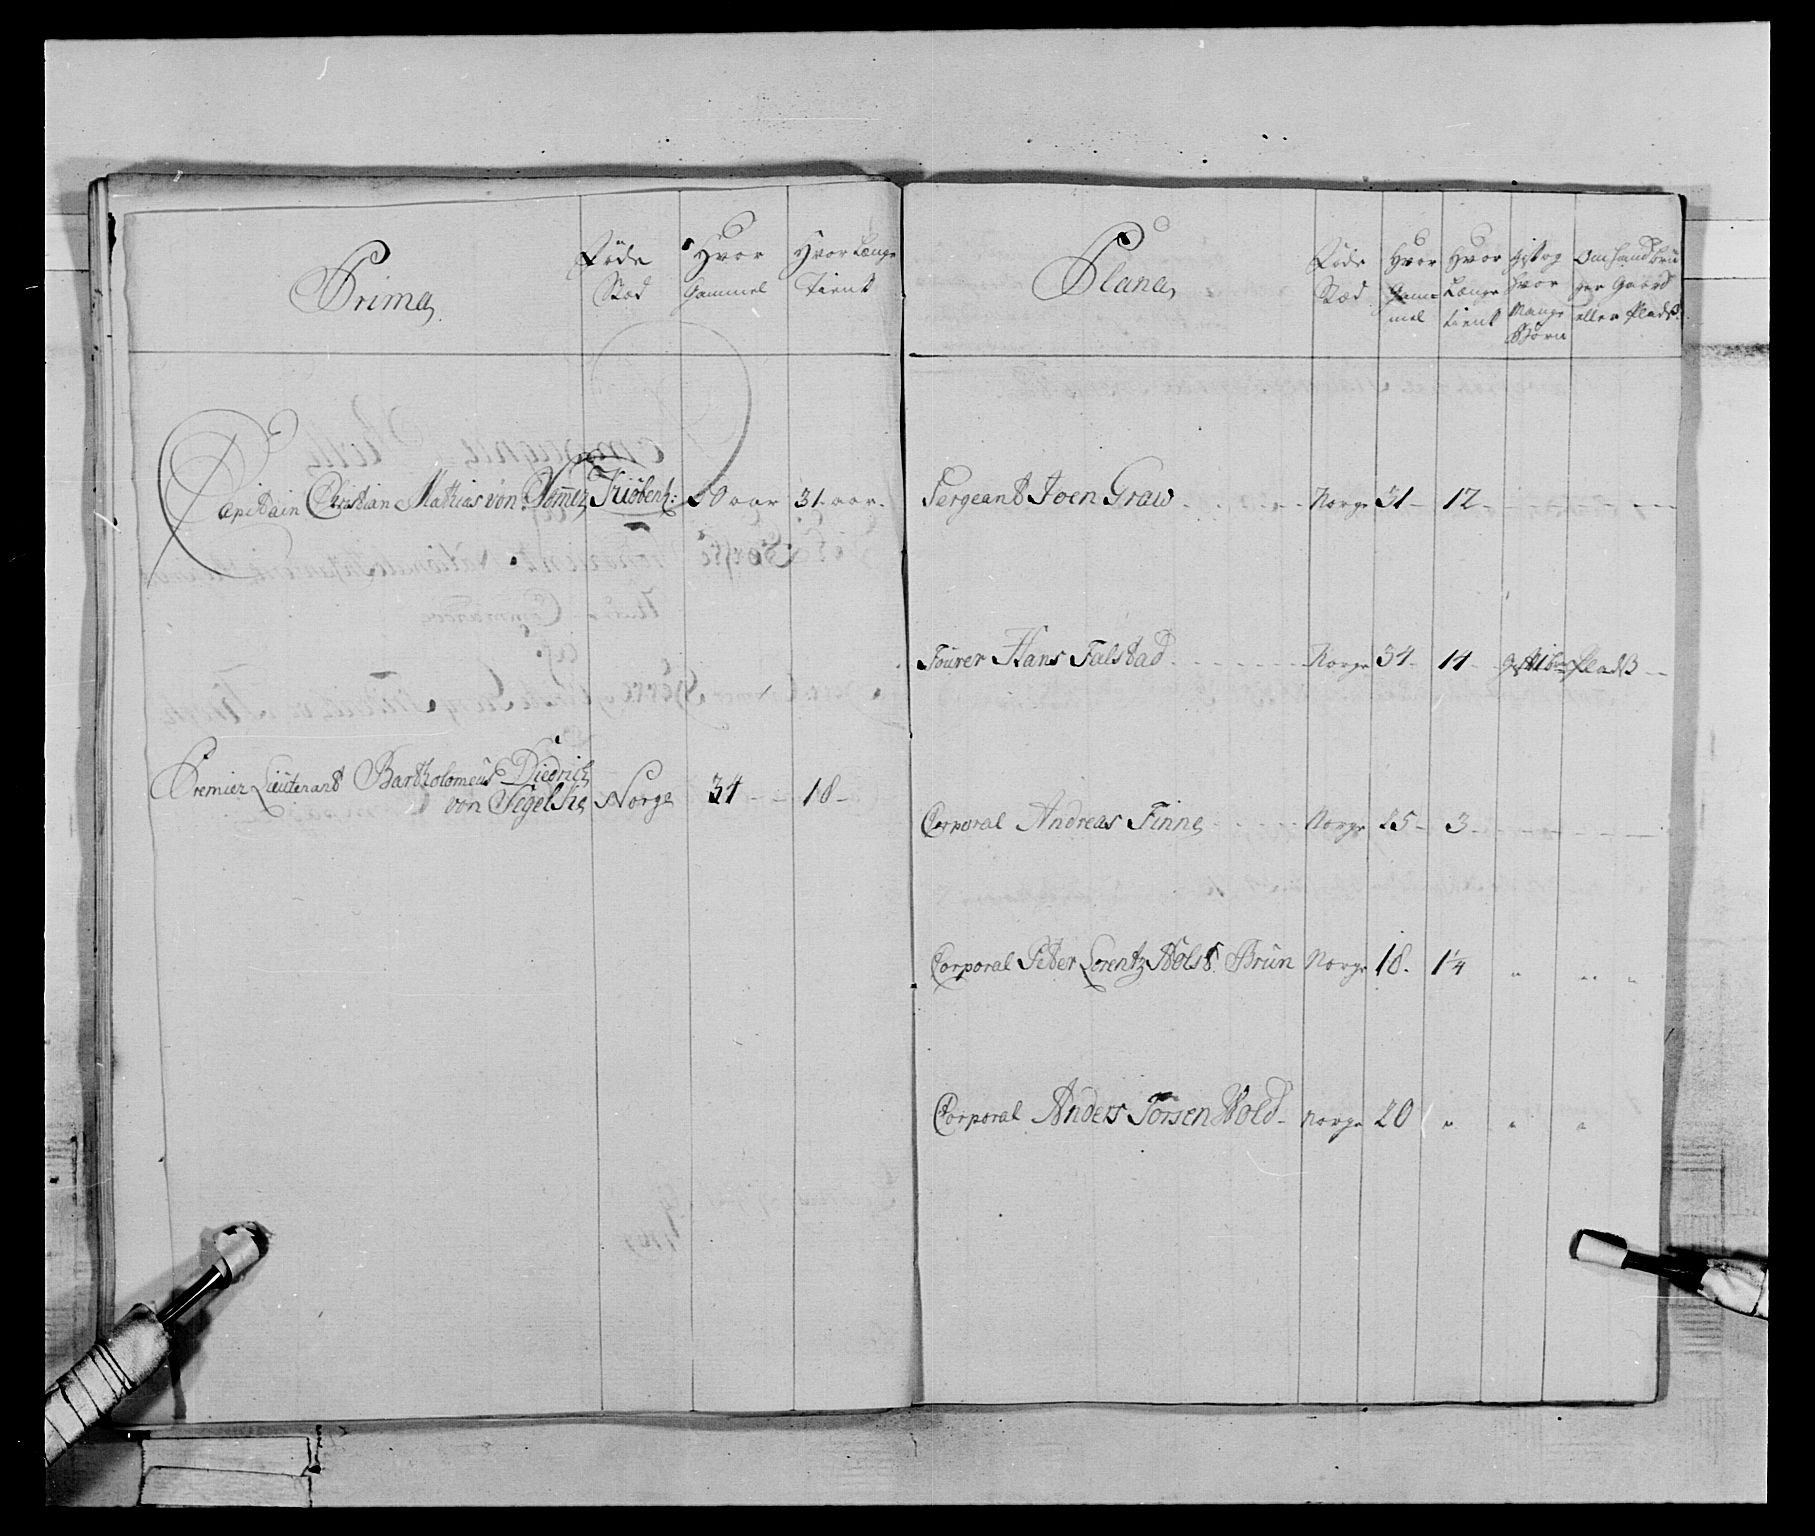 Prima
Føde Stæd
Hvor Gammel
Hvor Længe Tient
Capitain Christian Mathias von Sommer Kiøbenh: 50 aar 31 aar.
Premier Lieutenant Bartholomeus Diedrich
von Segelke Norge 34 18
Plana
Føde Stæd
Hvor Gammel
Hvor Længe tient
Gift og Hvor Mange Børn
Om hand bruger Gaard eller Plads.
Sergeant Joen Graw Norge 31 12
Fourer Hans Falstad Norge 34 14 Plads
Corporal Andreas Finne Norge 25 3
Corporal Peter Lorentz Holst Brun Norge 18. 1 1/4 " " "
Corporal Anders Torsen Wold Norge 20 " " "